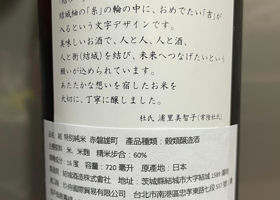 結城紬の「糸」の輪の中に、おめでたい「吉」が
入るという文字デザインです。
美味しいお酒で、人と人、人と酒、
人と街(結城)を結び、未来へつなげたいという
願いが込められています。
あたたかな想いを宿したお米を
大切に、丁寧に醸しました。
杜氏 浦里美智子(常陸杜氏)
品名:結 特別純米 赤磐雄町 產品種類:穀類釀造酒
主要原料:米、米麴 精米步合:60%
酒精成分:16度 容量:720毫升 原產地:日本
結城酒造株式会社 地址:茨城縣結城市大字結城1589番地